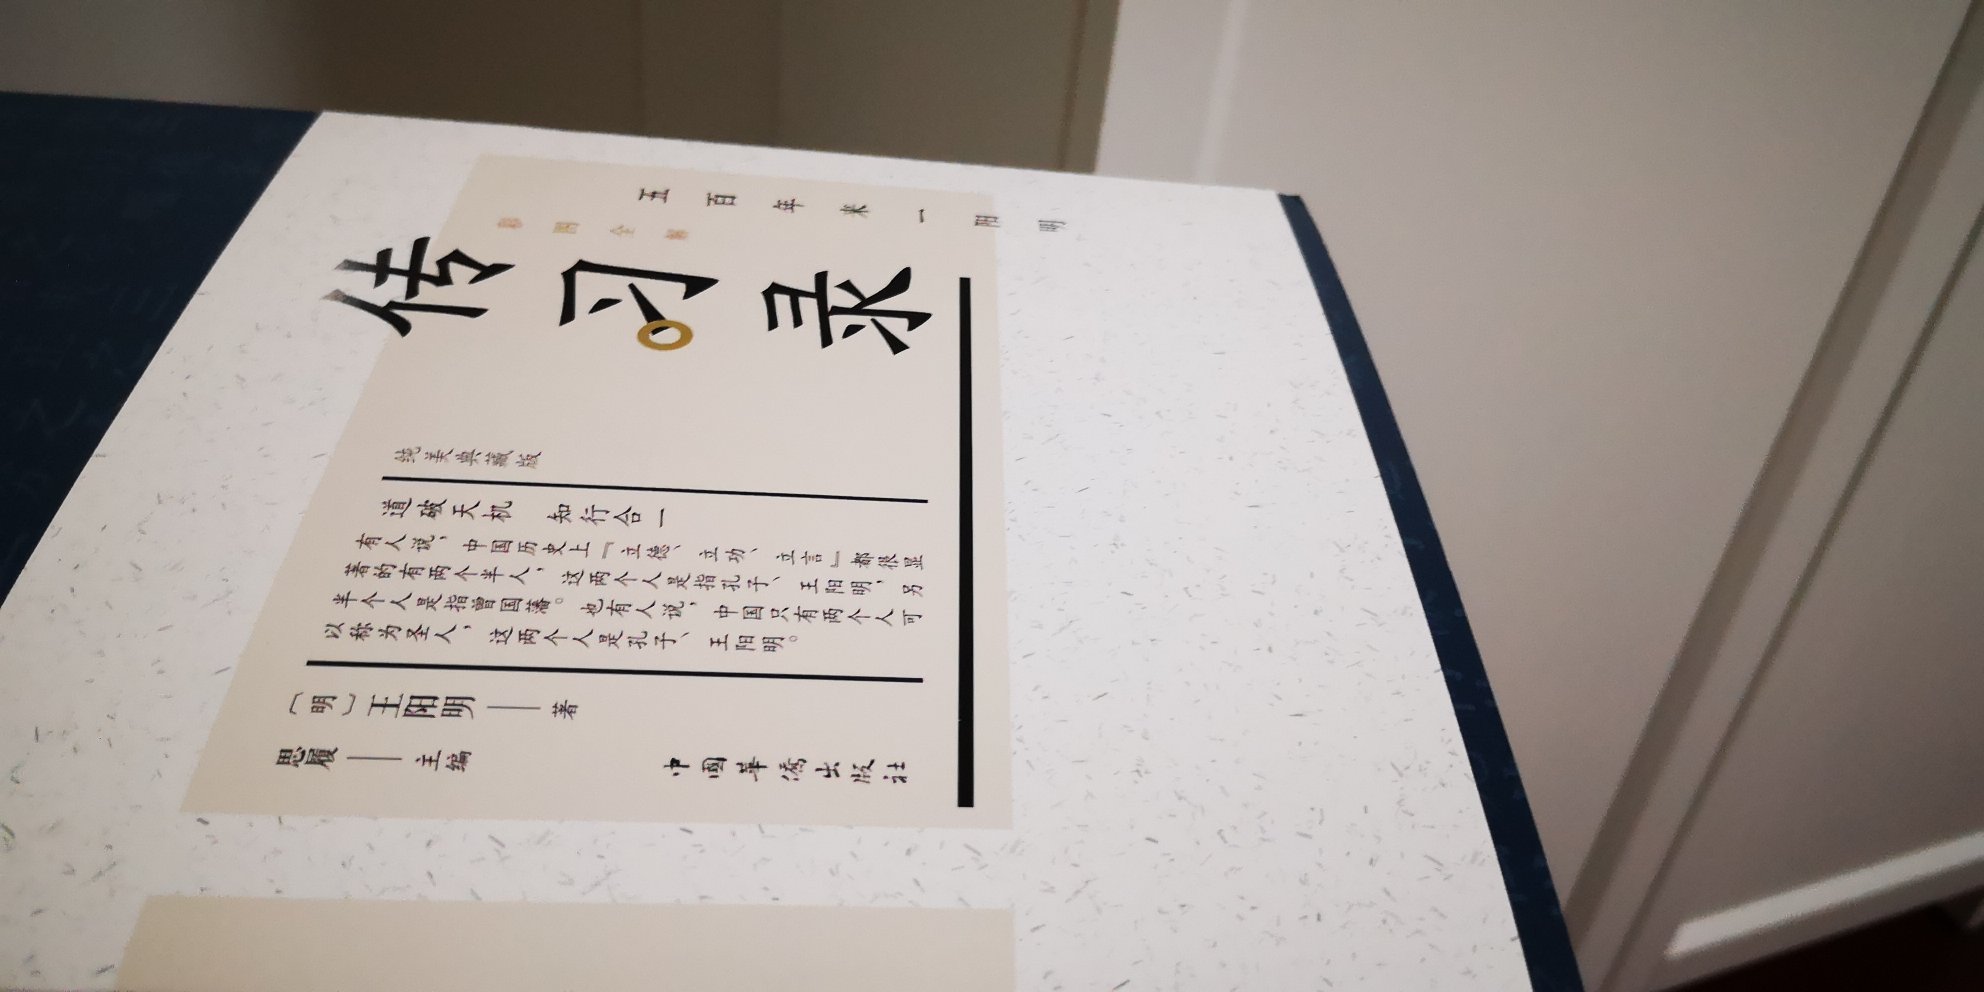 五百年来一阳明
彩图全解
传习录
绝美典藏版
道破天机 知行合一
有人说，中国历史上『立德、立功、立言』都很显
著的有两个半人，这两个人是指孔子、王阳明，另
半个人是指曾国藩。也有人说，中国只有两个人可
以称为圣人，这两个人是孔子、王阳明。
〔明〕王阳明——著
思履——主编
中國華僑出版社